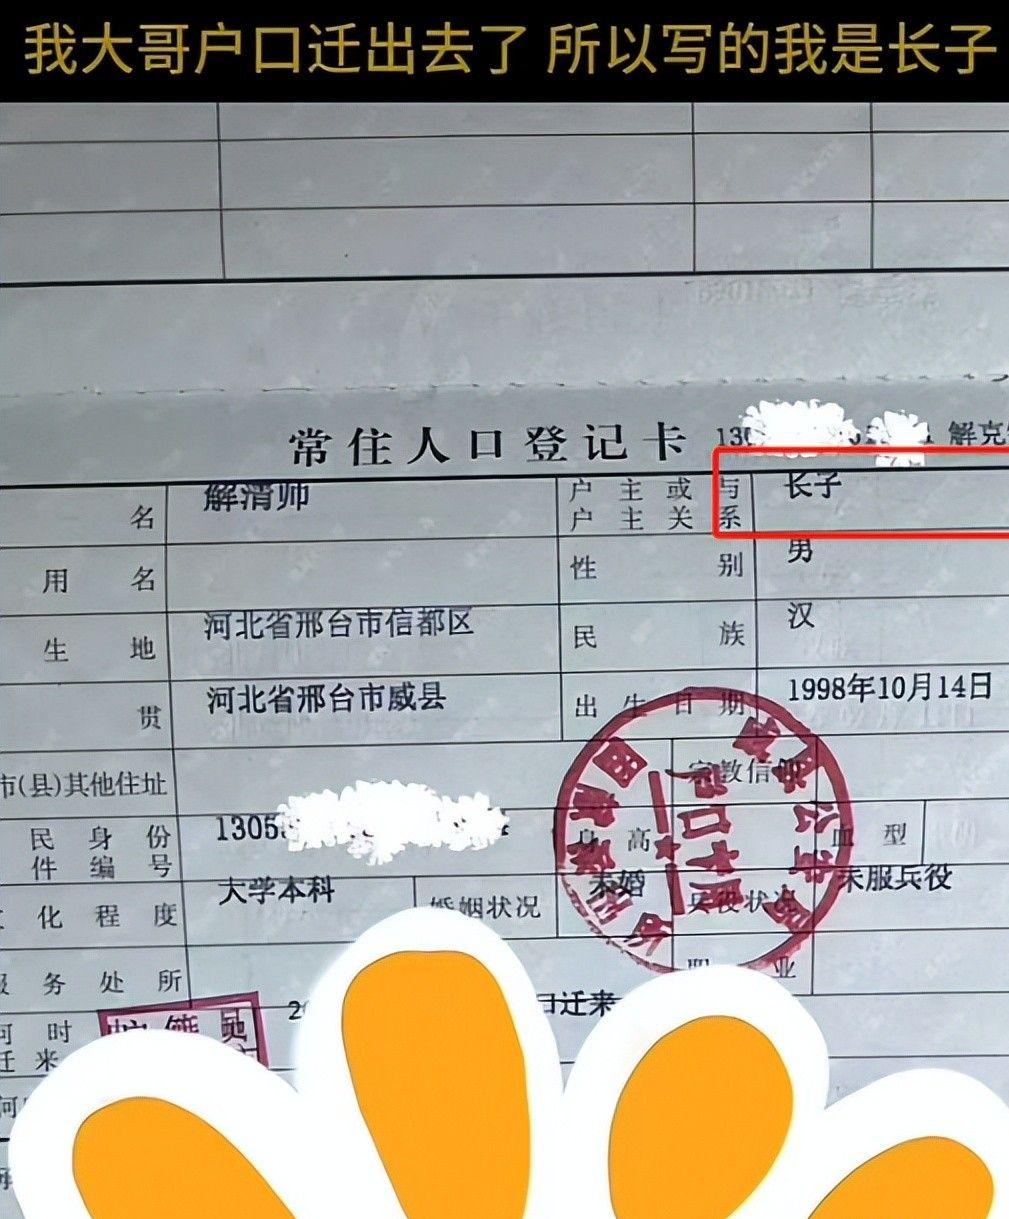 我大哥户口迁出去了 所以写的我是长子
常住人口登记卡
解克
名
解清师
户主或与
户主关系
长子
用名
性别
男
生地
河北省邢台市信都区
民族
汉
贯
河北省邢台市威县
出生日期
1998年10月14日
市(县)其他住址
宗教信仰
民身份
件编号
1305
身高
血型
化程度
大学本科
婚姻状况
未婚
兵役状况
未服兵役
服务处所
职业
何时
迁来
口迁来
户口专用